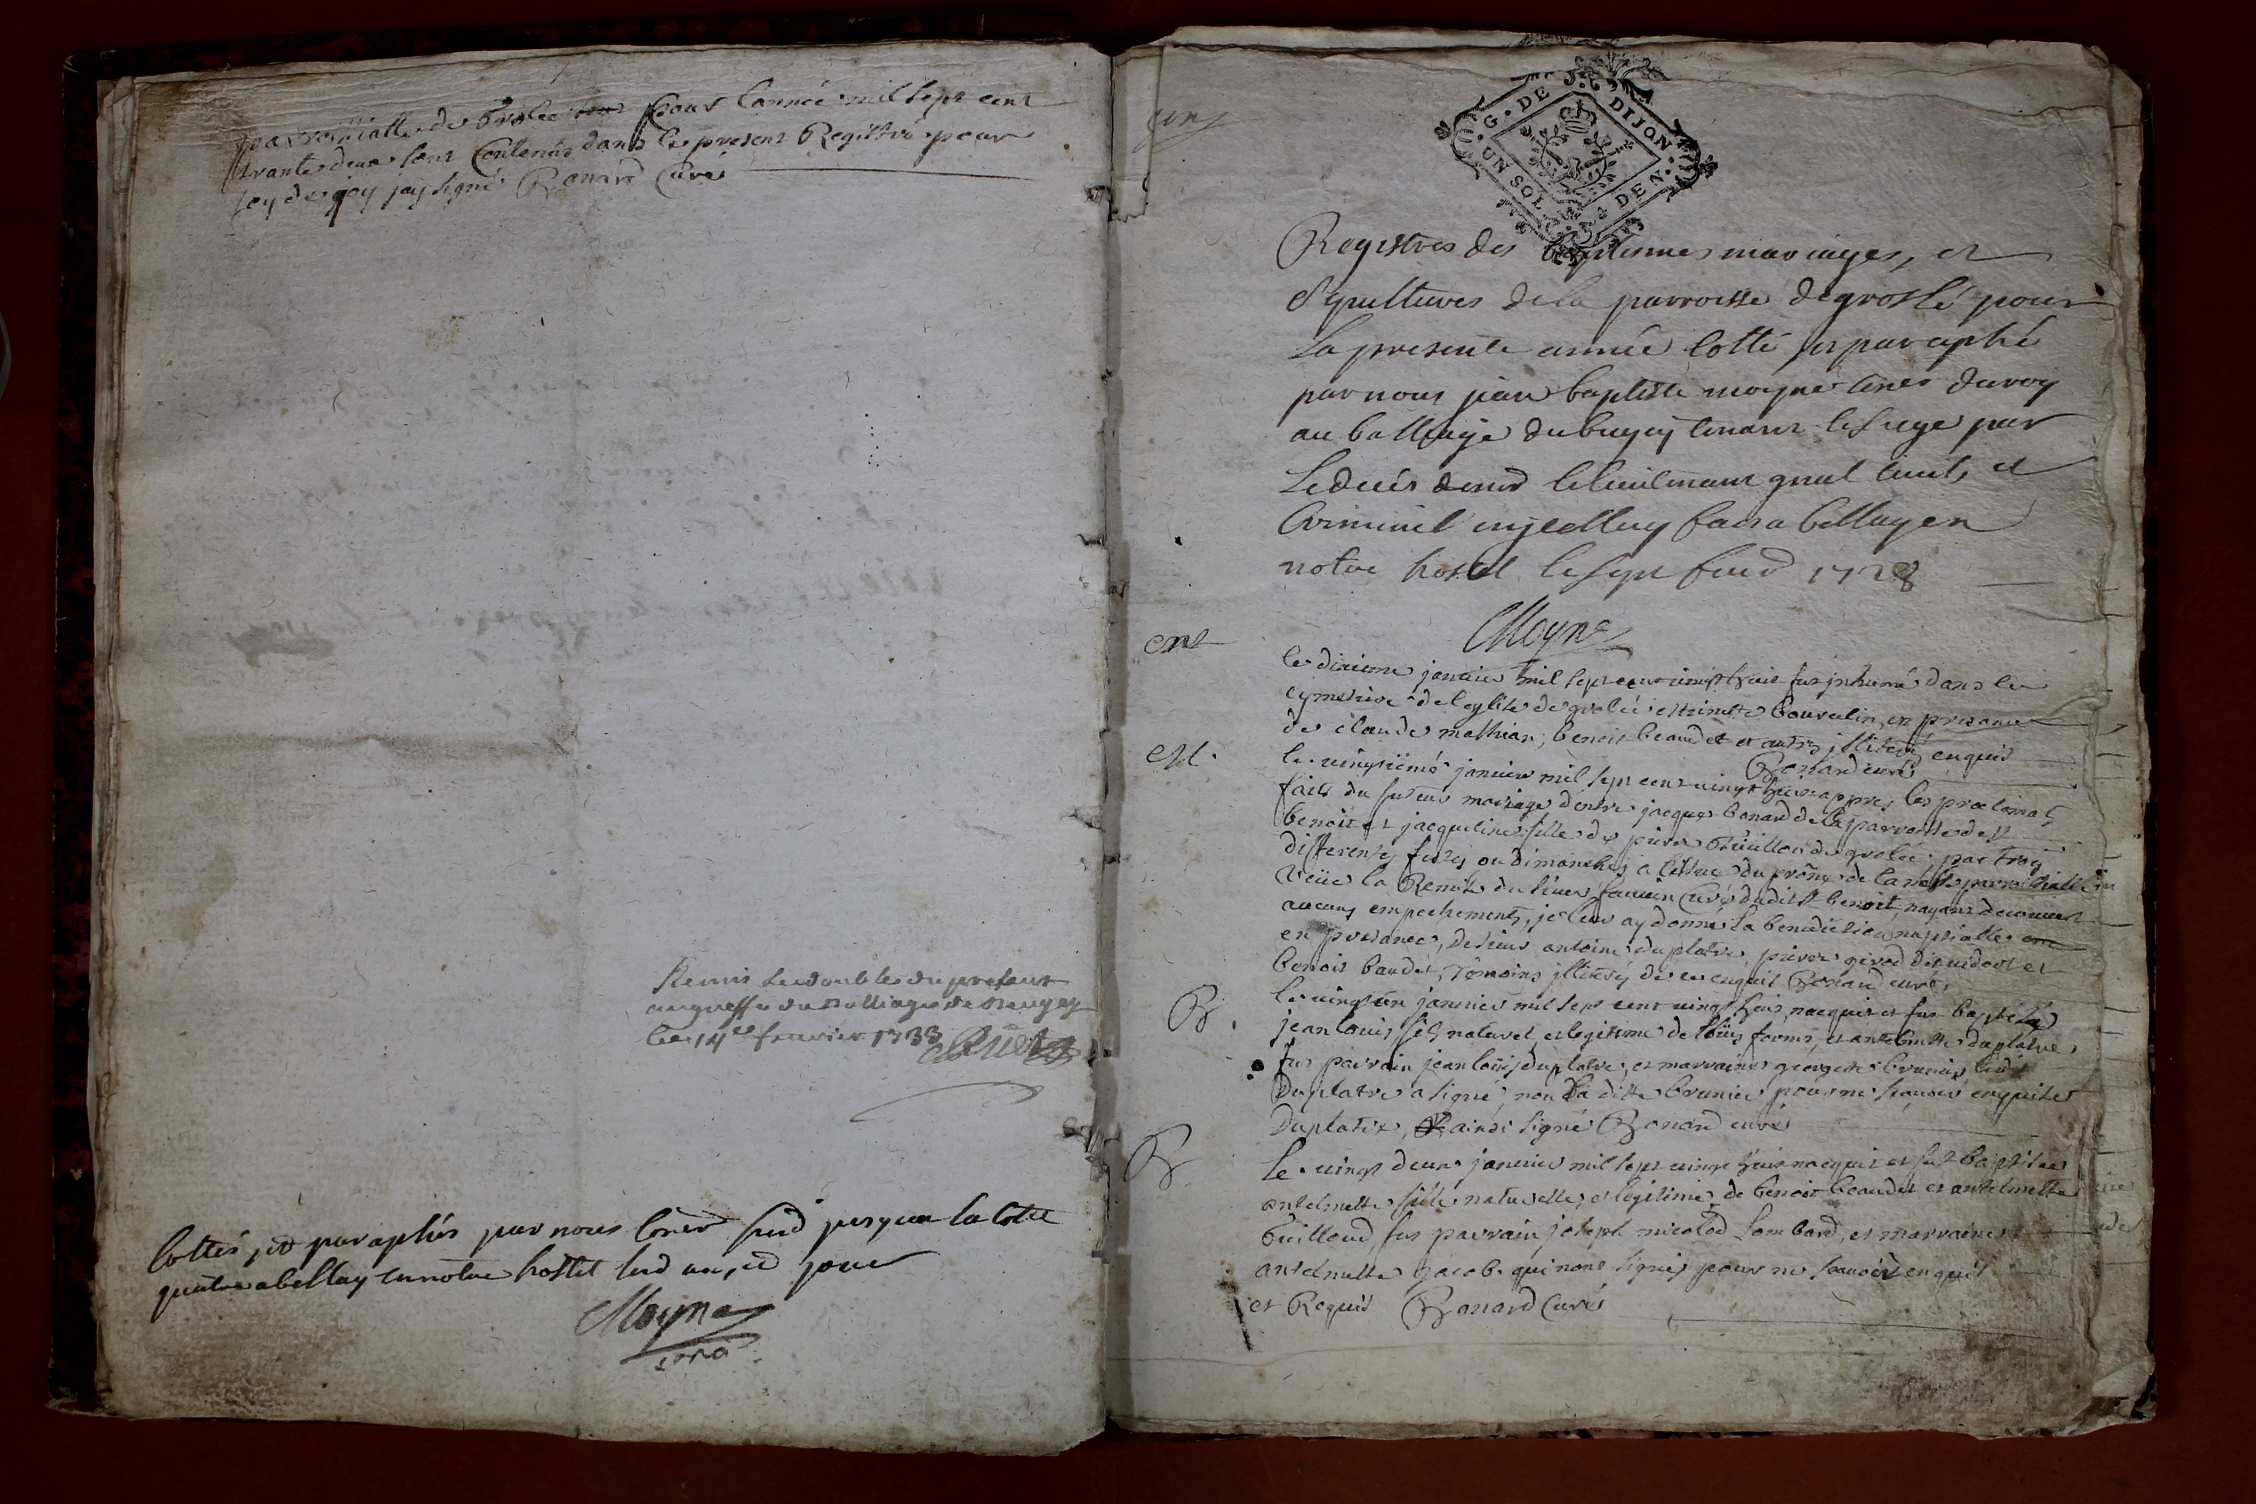 parroissialle de Grolée pour l'année mil sept cent
trante deux sont Contenus dans le present Registre pour
foy de quoy jay signé Bonard Curé
Remis le double du present
au greffe du Balliage de Beugey
le 14e fevrier 1733
Cottés et paraphés par nous jusqua la cotte
quatre a bellay en notre hostel jour
Moyne
G. DE DIJON
UN SOL DE N.
Registres des baptesmes mariages, et
Sepultures de la parroisse de groslé pour
La presente année Cotté et paraphé
par nous jean baptiste moyne du roy
au balliage du bugey tenant le siege par
Le deces de mr le lieutenant gnal civil, et
Criminel en jcelluy fait a bellay en
notre hostel le sept 1728
Moyne
ent
le dixieme janvier mil sept cent vingt huit fut jnhumé dans le
cymetiere de leglise de grolée bouvelin, en presance
de claude mathian, benoit beaudet et autres jlliterés enquis
Bonard curé
M.
le vingtiéme janvier mil sept cent vingt huit appres les proclamats
faits du futeur mariage d'entre jacque bonard de la parroisse de st
benoit et jacqueline fille de pierre Guillon de grolée, par trois
differents festes ou dimanches a l'issue du prône de la messe parroissialle
veüe la Remise du sieur curé dudit st benoit, nayant decouvert
aucuns empechements, je leur ay donné la benediction nuptialle
en presance, de sieur antoine duplatre, pierre girod dit vidost et
benoit baudet, témoins jlliterés de ce enquis Bonard curé
B.
le vingt un janvier mil sept cent vingt huit nacquit et fut baptisé
jean louis fils naturel et legitime de loüis et antelmette duplatre
fut parrain jean loüis duplatre, et marraine georgette brunier, ledit
Duplatre a signé, non la ditte brunier pour ne scavoir enquise
Duplatre, ainsi signé Bonard curé
B.
Le vingt deux janvier mil sept vingt huit nacquit et fut baptisée
antelmette fille naturelle et legitime de benoit beaudet et antelmette
Guilloud, fut parrain joseph micolod Lombard, et marraine
antelmette jacob qui nont signés pour ne scavoir enquis
et Requis Bonard Curé